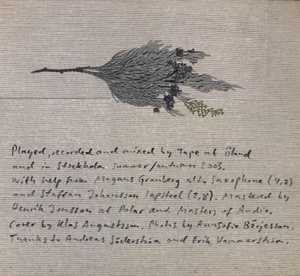 Played, recorded and mixed by Tape at Öland
and in Stockholm summer/autumn 2003.
With help from Magnus Granberg alto saxophone (4,7)
and Staffan Johansson lapsteel (2,8). Mastered by
Henrik Jonsson at Polar and Masters of Audio.
Cover by Klas Augustsson. Photos by AnnSofie Börjesson.
Thanks to Andreas Söderström and Erik Hammarström.